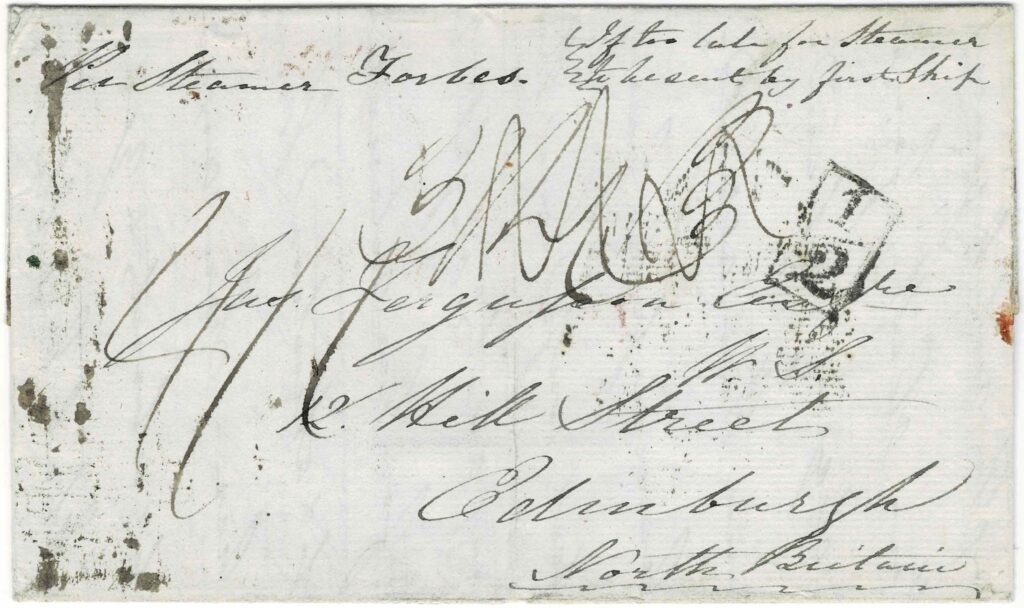 Per Steamer Forbes.
If too late for Steamer
to be sent by first Ship
Jas. Ferguson Esquire
W. S.
12. Hill Street
Edinburgh
North Britain
1
2